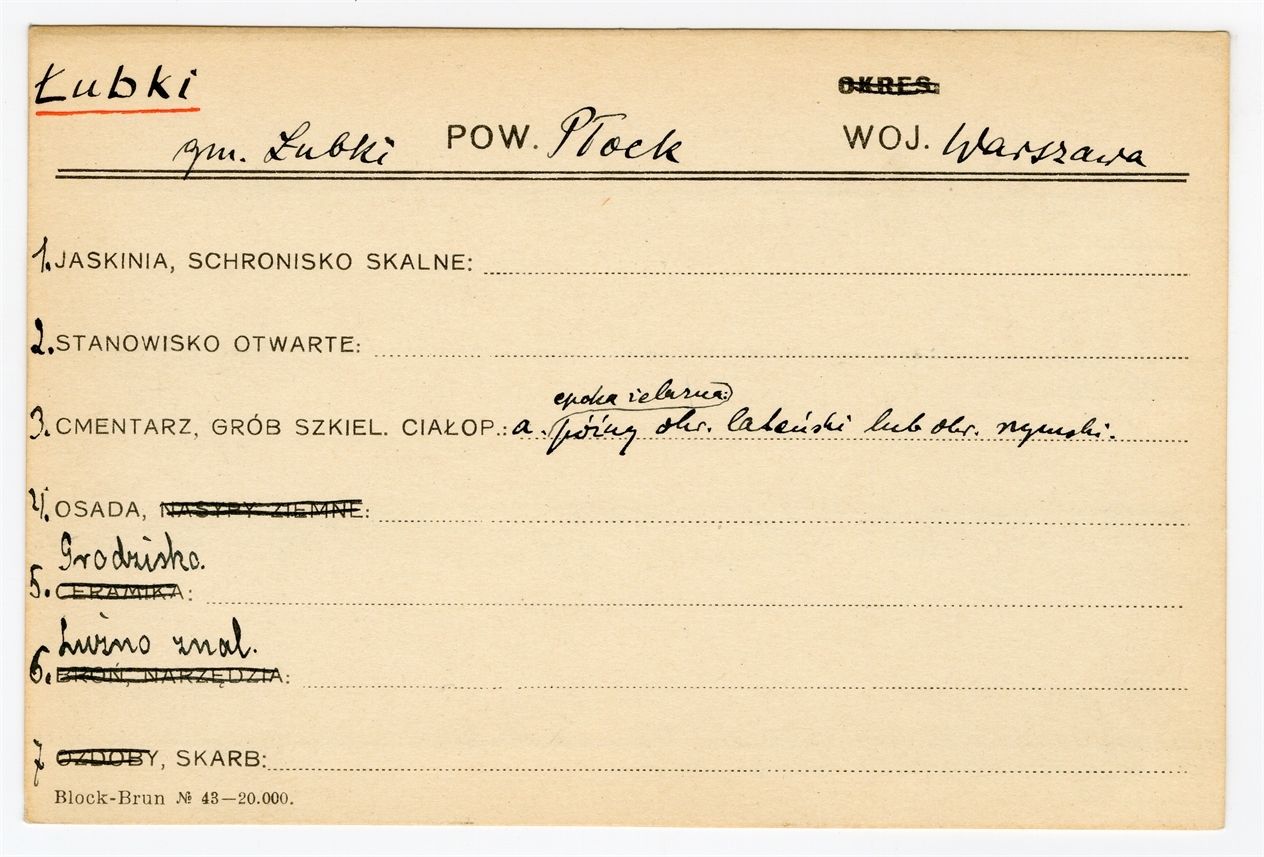 Łubki
OKRES:
gm. Łubki POW. Płock WOJ. Warszawa
1. JASKINIA, SCHRONISKO SKALNE:
2. STANOWISKO OTWARTE:
epoka żelazna:
3. CMENTARZ, GRÓB SZKIEL. CIAŁOP.: a. późny okr. lateński lub okr. rzymski.
4. OSADA, NASYPY ZIEMNE:
Grodzisko.
5. CERAMIKA:
Luźno znal.
6. BROŃ, NARZĘDZIA:
7 OZDOBY, SKARB:
Block-Brun № 43—20.000.